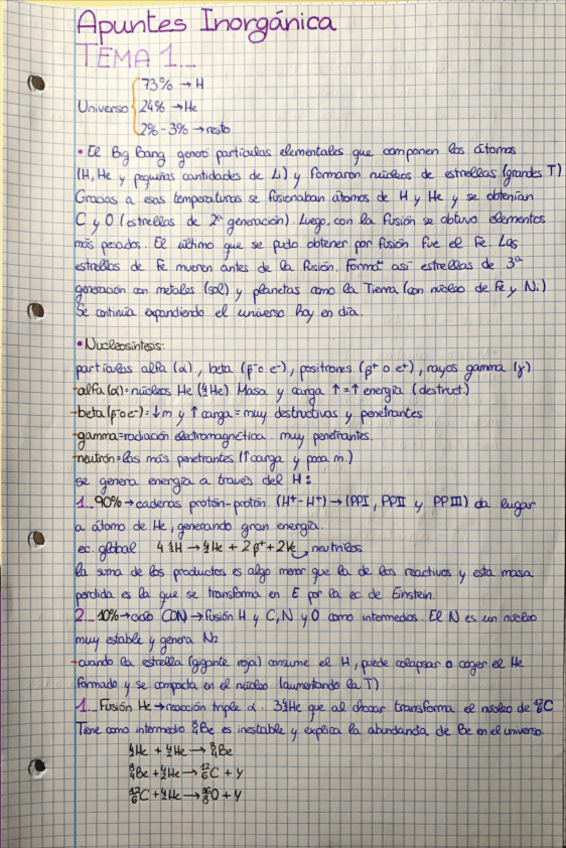 Apuntes Inorgánica
TEMA 1._
73% → H
Universo 24% → He
2% - 3% → resto
• El Big Bang generó partículas elementales que componen los átomos
(H, He y pequeñas cantidades de Li) y formaron núcleos de estrellas (grandes T)
Gracias a esas temperaturas se fusionaban átomos de H y He y se obtenían
C y O (estrellas de 2ª generación). Luego, con la fusión se obtuvo elementos
más pesados. El último que se pudo obtener por fusión fue el Fe. Las
estrellas de Fe mueren antes de la fusión. Formó así estrellas de 3ª
generación con metales (sol) y planetas como la Tierra (con núcleo de Fe y Ni)
Se continúa expandiendo el universo hoy en día.
• Nucleosíntesis:
partículas alfa (α), beta (β⁻ o e⁻), positrones (β⁺ o e⁺), rayos gamma (γ)
-alfa (α)= núcleos He (⁴₂He) Masa y carga ↑ = ↑ energía (destruct.)
-beta (β⁻ o e⁻) = ↓ m y ↑ carga = muy destructivas y penetrantes
-gamma = radiación electromagnética. muy penetrantes.
-neutrón = los más penetrantes (↑ carga y poca m.)
se genera energía a través del H:
1._ 90% → cadenas protón-protón (H⁺-H⁺) → (PPI, PPII y PPIII) da lugar
a átomo de He, generando gran energía.
ec. global 4 ¹₁H → ⁴₂He + 2β⁺ + 2νe → neutrinos
la suma de los productos es algo menor que la de los reactivos y esta masa
perdida es la que se transforma en E por la ec de Einstein.
2._ 10% → ciclo CON → fusión H y C, N y O como intermedios. El N es un núcleo
muy estable y genera N₂
-cuando la estrella (gigante roja) consume el H, puede colapsar o coger el He
formado y se compacta en el núcleo (aumentando la T)
1._ Fusión He → reacción triple α. 3⁴₂He que al chocar transforma el núcleo de ¹²₆C
Tiene como intermedio ⁸₄Be es inestable y explica la abundancia de Be en el universo.
⁴₂He + ⁴₂He → ⁸₄Be
⁸₄Be + ⁴₂He → ¹²₆C + γ
¹²₆C + ⁴₂He → ¹⁶₈O + γ